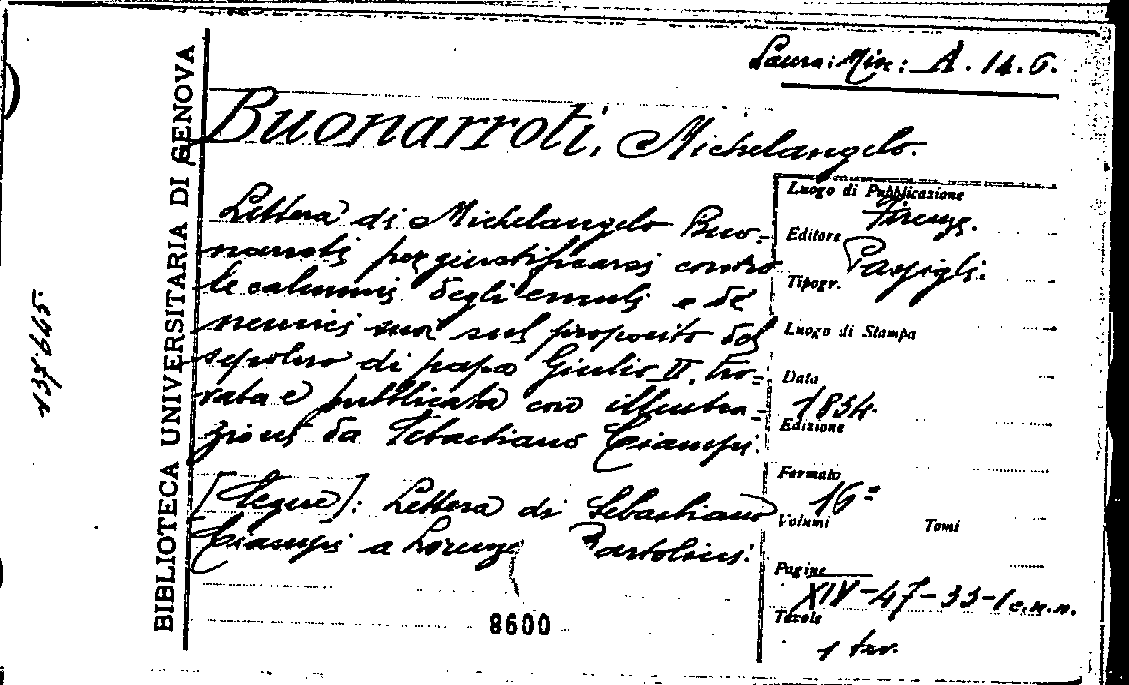 Laura: Min: A. 14. 6.
BIBLIOTECA UNIVERSITARIA DI GENOVA
137645
Buonarroti, Michelangelo.
Lettera di Michelangelo Buo=
narroti per giustificarsi contro
le calunnie degli emuli e de'
nemici suoi sul proposito del
sepolcro di papa Giulio II. tro=
vata e pubblicata con illustra=
zioni da Sebastiano Ciampi.
[Segue]: Lettera di Sebastiano
Ciampi a Lorenzo Bartolini.
8600
Luogo di Pubblicazione
Firenze.
Editore
Passigli.
Tipogr.
Luogo di Stampa
Data
1834.
Edizione
Formato
16=
Volumi Tomi
Pagine
XIV-47-33-1 c.n.n.
Tavole
1 tav.